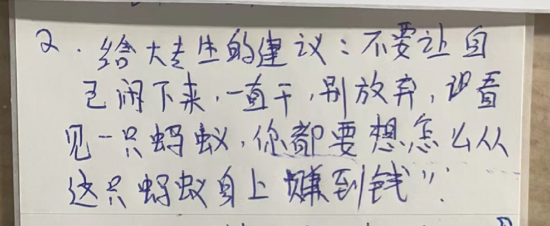 2. 给大专生的建议：不要让自
己闲下来，一直干，别放弃，
见一只蚂蚁，你都要想怎么从
这只蚂蚁身上赚到钱